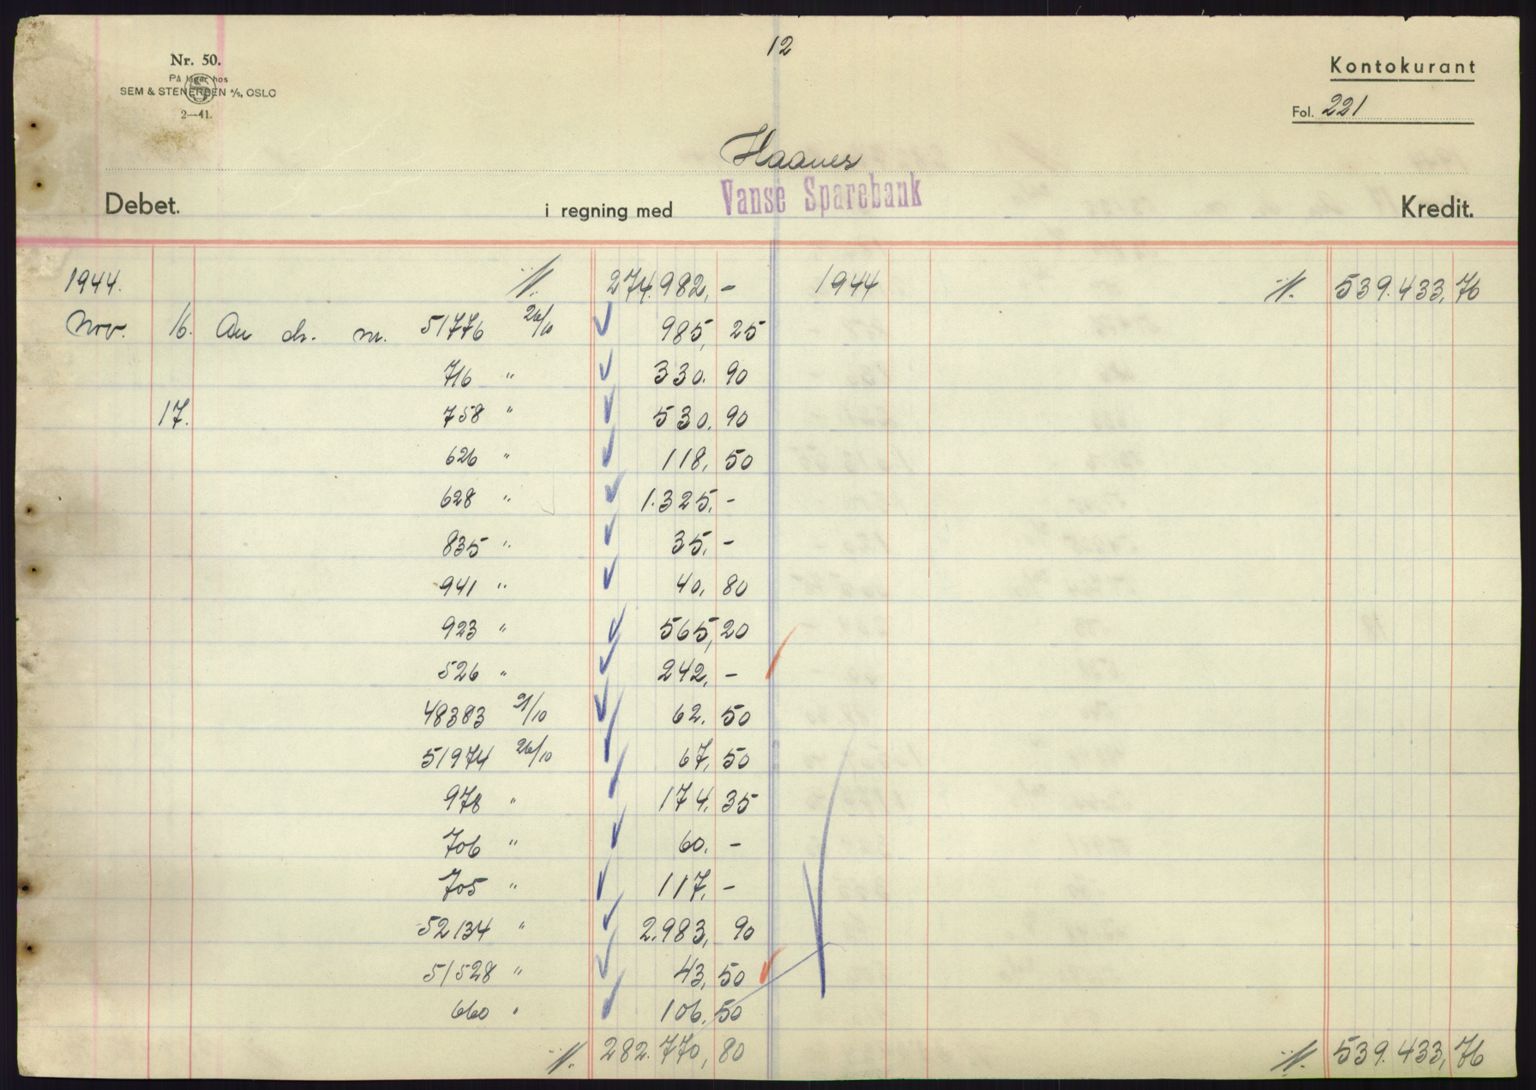 12
Nr. 50.
På lager hos
SEM & STENERSEN A/S, OSLO
2—41.
Kontokurant
Fol. 221
Haanes
Debet. i regning med Vanse Sparebank Kredit.
1944. 274.982,- 1944 539.433,76
Nov. 16. An ch. nr. 51776 26/10 985,25
716 " 330.90
17. 758 " 530.90
626 " 118,50
628 " 1.325,-
835 " 35,-
941 " 40,80
923 " 565,20
526 " 242,-
48383 21/10 62.50
51974 26/10 67,50
978 " 174.35
706 " 60.-
705 " 117,-
52134 " 2.983,90
51528 " 43,50
660 " 106,50
282.770,80 539.433,76